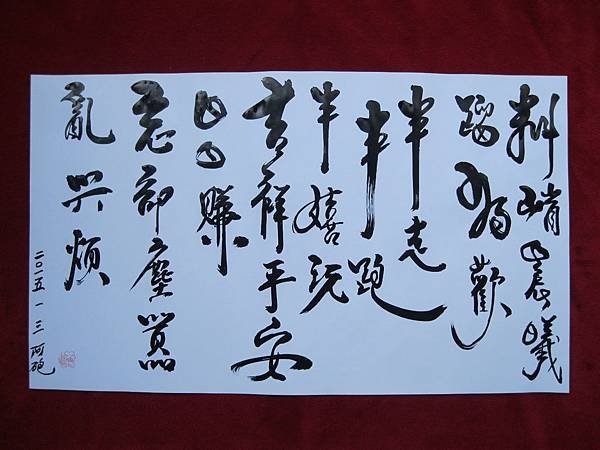 料峭晨曦
蹓狗歡
半走
半跑
半嬉玩
吉祥平安
日日賺
忘卻塵囂
亂與煩
二〇一五 一 三 阿砲